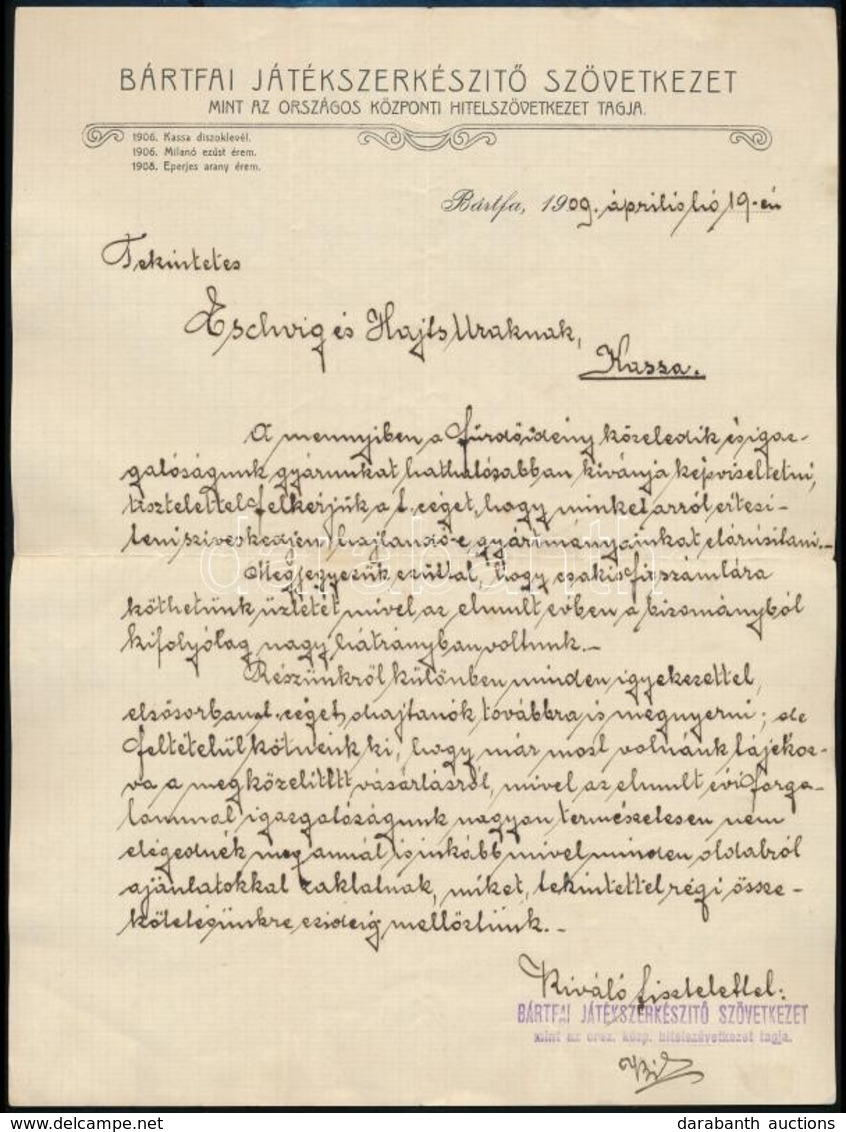 BÁRTFAI JÁTÉKSZERKÉSZITŐ SZÖVETKEZET
MINT AZ ORSZÁGOS KÖZPONTI HITELSZÖVETKEZET TAGJA.
1906. Kassa diszoklevél.
1906. Milanó ezüst érem.
1908. Eperjes arany érem.
Bártfa, 1909. április hó 19-én
Tekintetes
Eschwig és Hajts Uraknak,
Kassa.
A mennyiben a fürdőidény közeledik és igaz-
galóságunk gyárunkat hathatósabban kivánja képviseltetni,
tisztelettel felkérjük a t. céget, hogy minket arról értesi-
teni sziveskedjen, hajlandó-e gyártmányainkat elárúsitani.-
Megjegyezük ezúttal, hogy csakis fix számlára
köthetünk üzletet mivel az elmult évben a bizományból
kifolyólag nagy hátrányban voltunk.-
Részünkről különben minden igyekezettel,
elsősorban t. céget óhajtanók továbbra is megnyerni; de
feltételül kötnénk ki, hogy már most volnánk tájékoz-
va a megközelitett vásárlásról, mivel az elmult évi forga-
lommal igazgatóságunk nagyon természetesen nem
elégednék meg annál is inkább mivel minden oldalról
ajánlatokkal zaklatnak, miket, tekintettel régi össze-
köttetésünkre ezideig mellőztünk.-
Kiváló tisztelettel:
BÁRTFAI JÁTÉKSZERKÉSZITŐ SZÖVETKEZET
mint az orsz. közp. hitelszövetkezet tagja.
darabanth
darabanth auctions